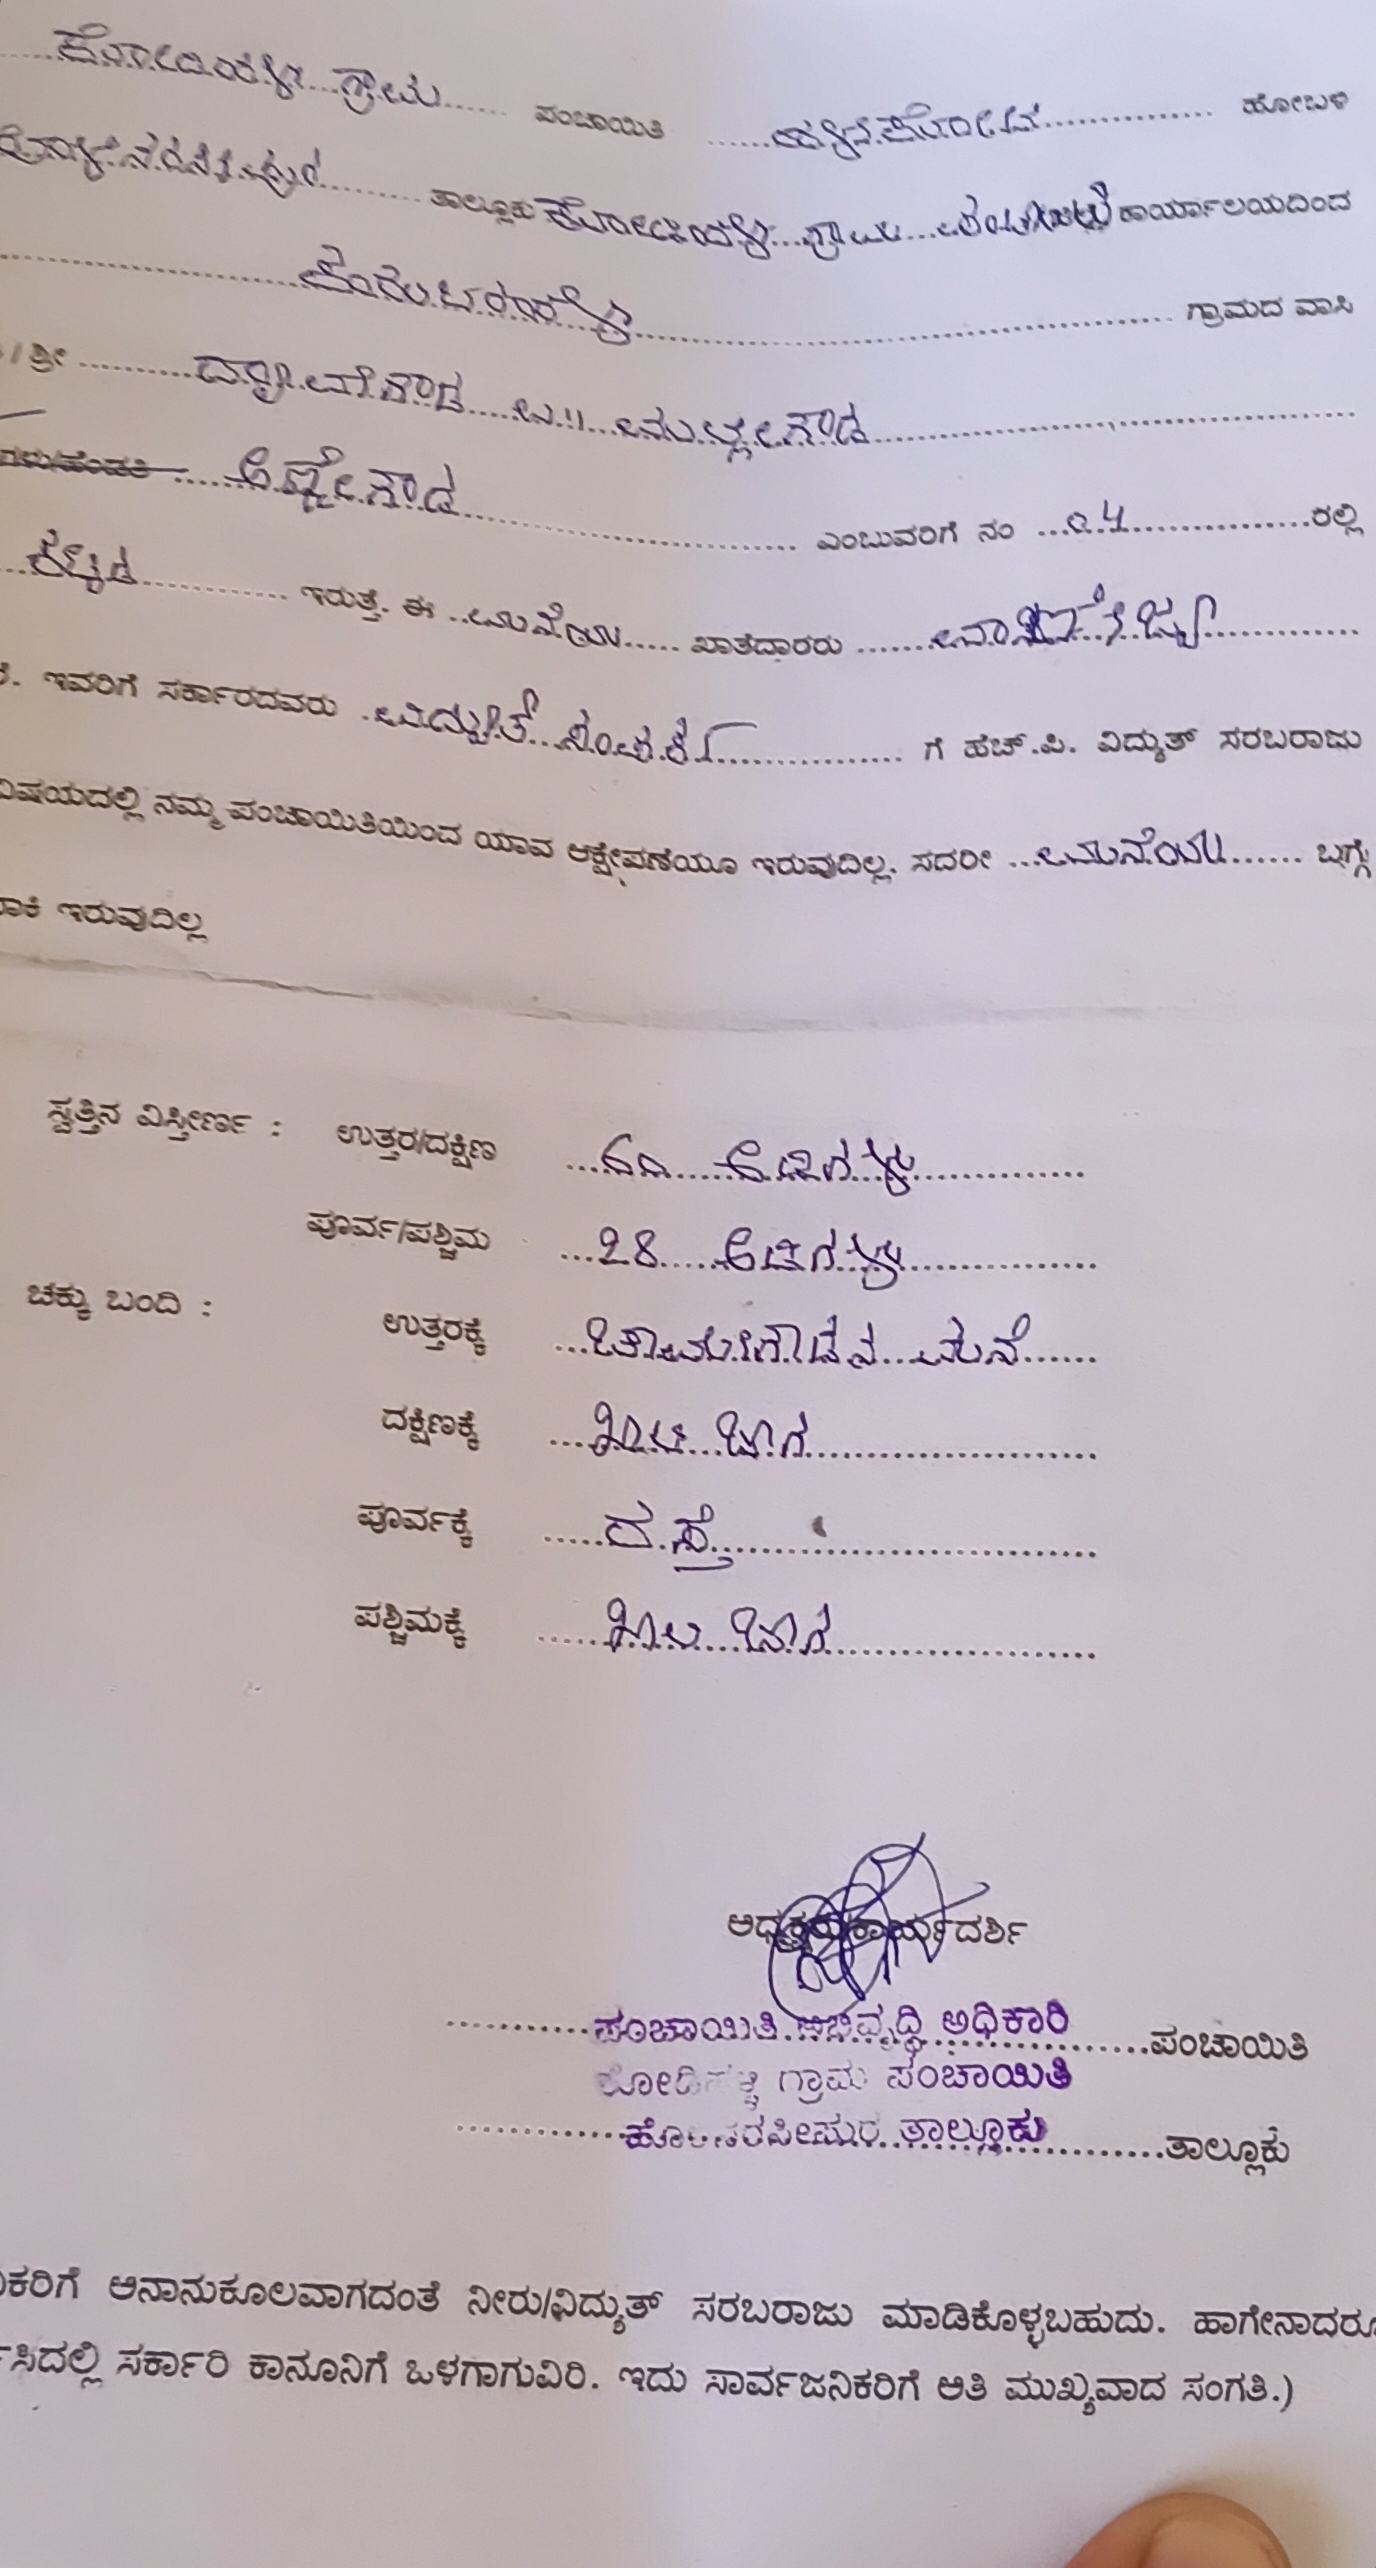 ಕೋಡಿಹಳ್ಳಿ ಗ್ರಾಮ ಪಂಚಾಯಿತಿ ಹಳ್ಳಿಮೈಸೂರು ಹೋಬಳಿ
ತಾಲ್ಲೂಕು ಕೋಡಿಹಳ್ಳಿ ಗ್ರಾಮ ಪಂಚಾಯಿತಿ ಕಾರ್ಯಾಲಯದಿಂದ
ಗ್ರಾಮದ ವಾಸಿ
/ ಶ್ರೀ ದ್ಯಾವೇಗೌಡ ಬಿ॥ ಮಲ್ಲೇಗೌಡ
ಅಣ್ಣೇಗೌಡ ಎಂಬುವರಿಗೆ ನಂ ೦೫ ರಲ್ಲಿ
ಕಟ್ಟಡ ಇರುತ್ತೆ. ಈ ಮನೆಯ ಖಾತೆದಾರರು
ಇವರಿಗೆ ಸರ್ಕಾರದವರು ವಿದ್ಯುತ್ ಸಂಪರ್ಕ ಗೆ ಹೆಚ್.ಪಿ. ವಿದ್ಯುತ್ ಸರಬರಾಜು
ವಿಷಯದಲ್ಲಿ ನಮ್ಮ ಪಂಚಾಯಿತಿಯಿಂದ ಯಾವ ಆಕ್ಷೇಪಣೆಯೂ ಇರುವುದಿಲ್ಲ. ಸದರೀ ಮನೆಯ ಬಗ್ಗೆ
ಬಾಕಿ ಇರುವುದಿಲ್ಲ
ಸ್ವತ್ತಿನ ವಿಸ್ತೀರ್ಣ : ಉತ್ತರ/ದಕ್ಷಿಣ ೬೦ ಅಡಿಗಳು
ಪೂರ್ವ/ಪಶ್ಚಿಮ 28 ಅಡಿಗಳು
ಚಕ್ಕು ಬಂದಿ :
ಉತ್ತರಕ್ಕೆ ಮನೆ
ದಕ್ಷಿಣಕ್ಕೆ ಖಾಲಿ ಜಾಗ
ಪೂರ್ವಕ್ಕೆ ರಸ್ತೆ
ಪಶ್ಚಿಮಕ್ಕೆ ಖಾಲಿ ಜಾಗ
ಅಧ್ಯಕ್ಷರು/ಕಾರ್ಯದರ್ಶಿ
ಪಂಚಾಯಿತಿ ಅಭಿವೃದ್ಧಿ ಅಧಿಕಾರಿ ಪಂಚಾಯಿತಿ
ಕೋಡಿಹಳ್ಳಿ ಗ್ರಾಮ ಪಂಚಾಯಿತಿ
ಹೊಳೆನರಸೀಪುರ ತಾಲ್ಲೂಕು ತಾಲ್ಲೂಕು
ಕರಿಗೆ ಆನಾನುಕೂಲವಾಗದಂತೆ ನೀರು/ವಿದ್ಯುತ್ ಸರಬರಾಜು ಮಾಡಿಕೊಳ್ಳಬಹುದು. ಹಾಗೇನಾದರೂ
ಸಿದಲ್ಲಿ ಸರ್ಕಾರಿ ಕಾನೂನಿಗೆ ಒಳಗಾಗುವಿರಿ. ಇದು ಸಾರ್ವಜನಿಕರಿಗೆ ಅತಿ ಮುಖ್ಯವಾದ ಸಂಗತಿ.)